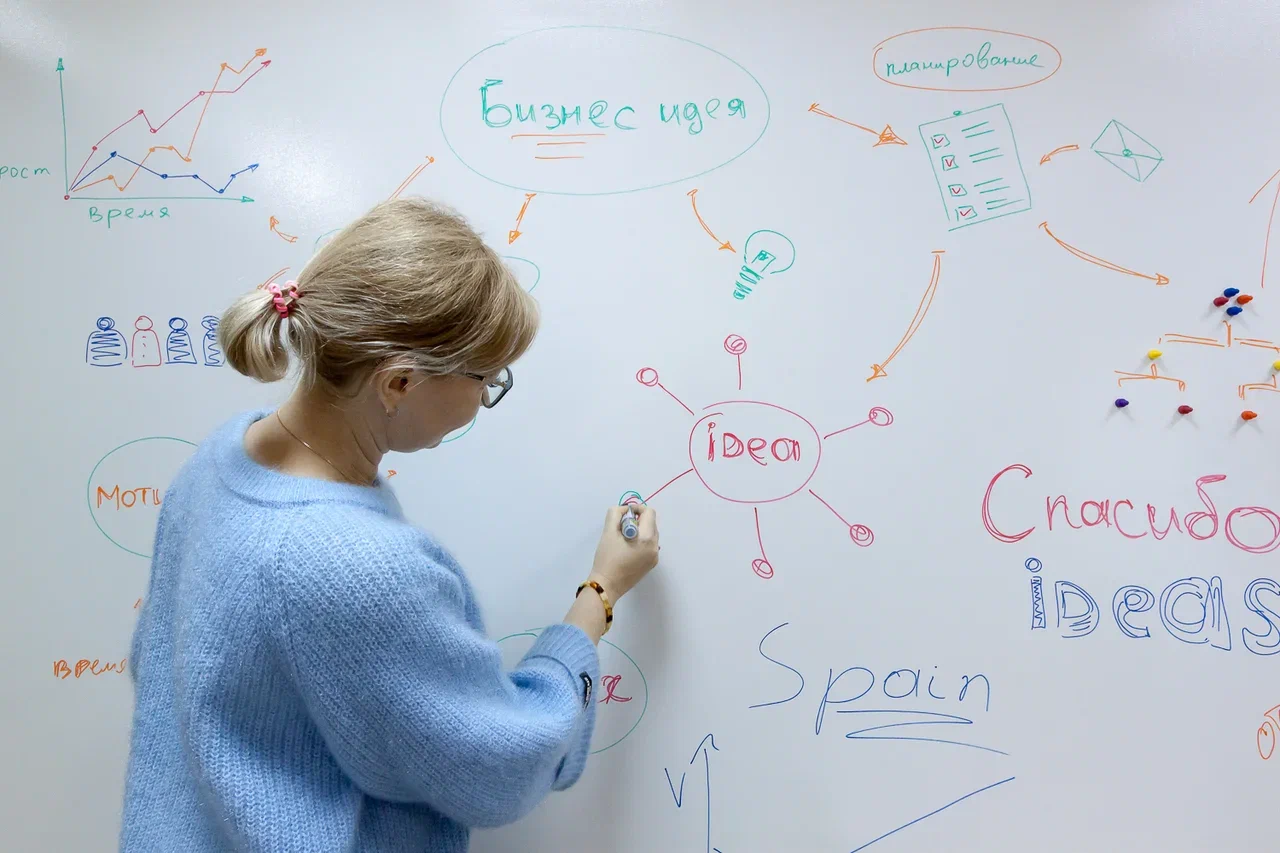 Бизнес идея
планирование
рост
время
idea
Спасибо
ideas
время
Spain
V